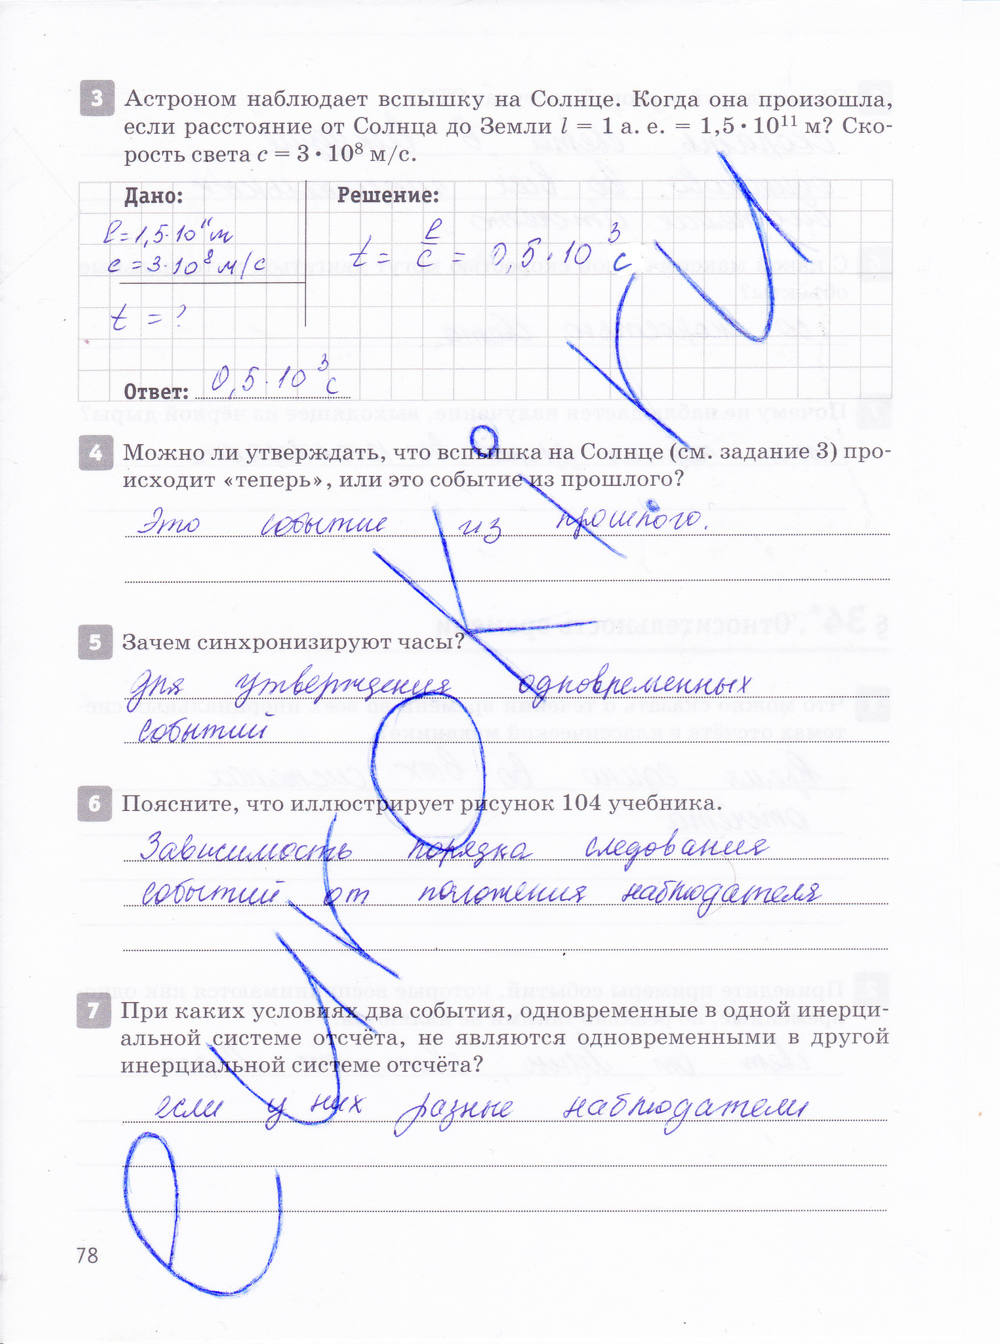 3 Астроном наблюдает вспышку на Солнце. Когда она произошла,
если расстояние от Солнца до Земли l = 1 а. е. = 1,5 • 10¹¹ м? Ско-
рость света c = 3 • 10⁸ м/с.
Дано: Решение:
l = 1,5·10¹¹ м
c = 3·10⁸ м/с
t = l/c = 0,5·10³ с
t = ?
Ответ: 0,5·10³ с
4 Можно ли утверждать, что вспышка на Солнце (см. задание 3) про-
исходит «теперь», или это событие из прошлого?
Это событие из прошлого.
5 Зачем синхронизируют часы?
Для утверждения одновременных
событий
6 Поясните, что иллюстрирует рисунок 104 учебника.
Зависимость порядка следования
событий от положения наблюдателя
7 При каких условиях два события, одновременные в одной инерци-
альной системе отсчёта, не являются одновременными в другой
инерциальной системе отсчёта?
если у них разные наблюдатели
78